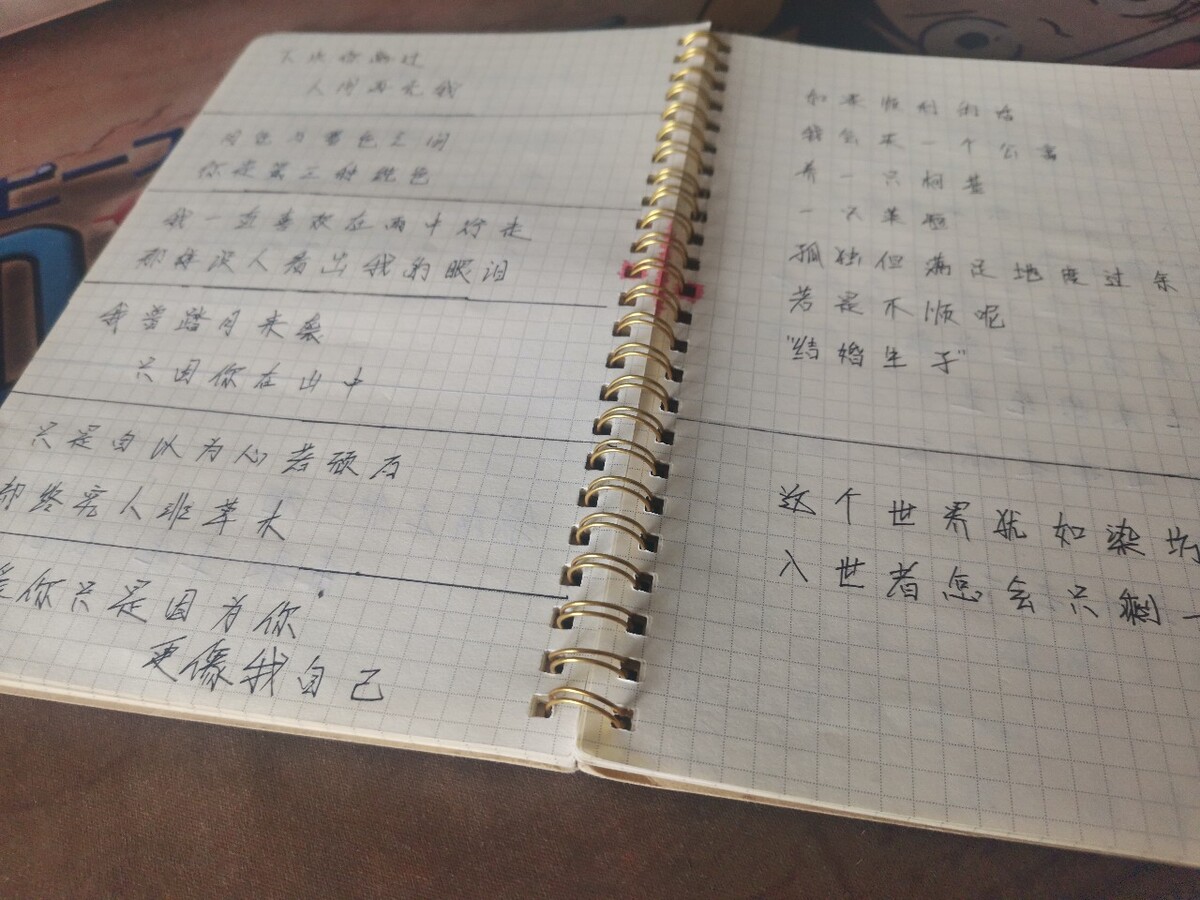 人间再无我
月色与雪色之间
你是第三种绝色
我一直喜欢在雨中行走
那样没人看出我的眼泪
我曾踏月来
只因你在山中
只是自以为心若顽石
却终究人非草木
你只是因为你
更像我自己
如果顺利的话
我会买一个公寓
养一只柯基
一只英短
孤独但满足地度过余
若是不顺呢
"结婚生子"
这个世界犹如染坊
入世者怎会只剩一